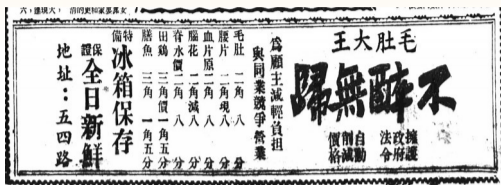 毛肚大王
不醉無歸
擁護政府法令
自動削減價格
為顧主減輕負担
與同業競爭營業
毛肚 二角 八分
腰片 二角現八分
血片原二角 八分
腦花 二角減八分
水價二角 八分
田鷄 三角價一角五分
膳魚 三角 一角五分
特備 冰箱保存
保證 全日新鮮
地址：五四路